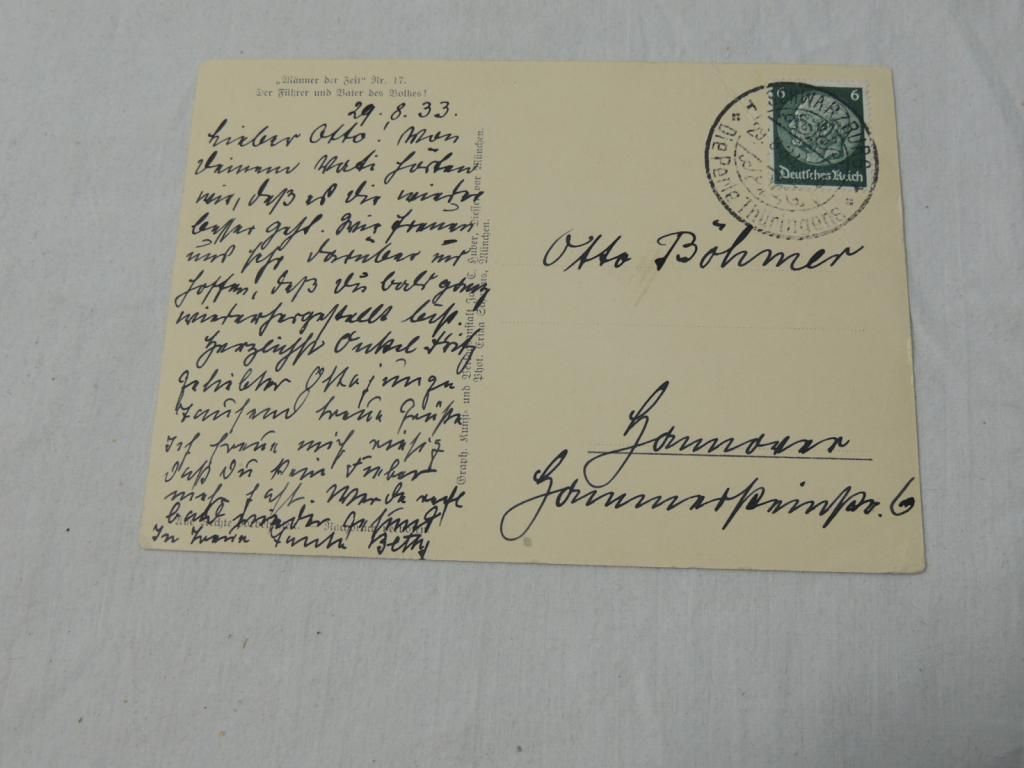 „Männer der Zeit“ Nr. 17.
Der Führer und Vater des Volkes!
29.8.33.
Lieber Otto! Von
Deinem Vati hörten
wir, daß es dir wieder
besser geht. Wir freuen
uns sehr darüber und
hoffen, daß du bald ganz
wiederhergestellt bist.
Herzlichst Onkel Fritz
Geliebter
Tausend treue Grüße
Ich freue mich riesig
daß Du kein Fieber
mehr hast. Werde recht
bald wieder gesund
In Treue Tante Betty
Alle Rechte
Graph. Kunst- und Huber, vor München.
Phot. München.
6 6
Deutsches Reich
SCHWARZBURG
Die Perle Thüringens
Otto Böhmer
Hannover
Hammersteinstr. 6